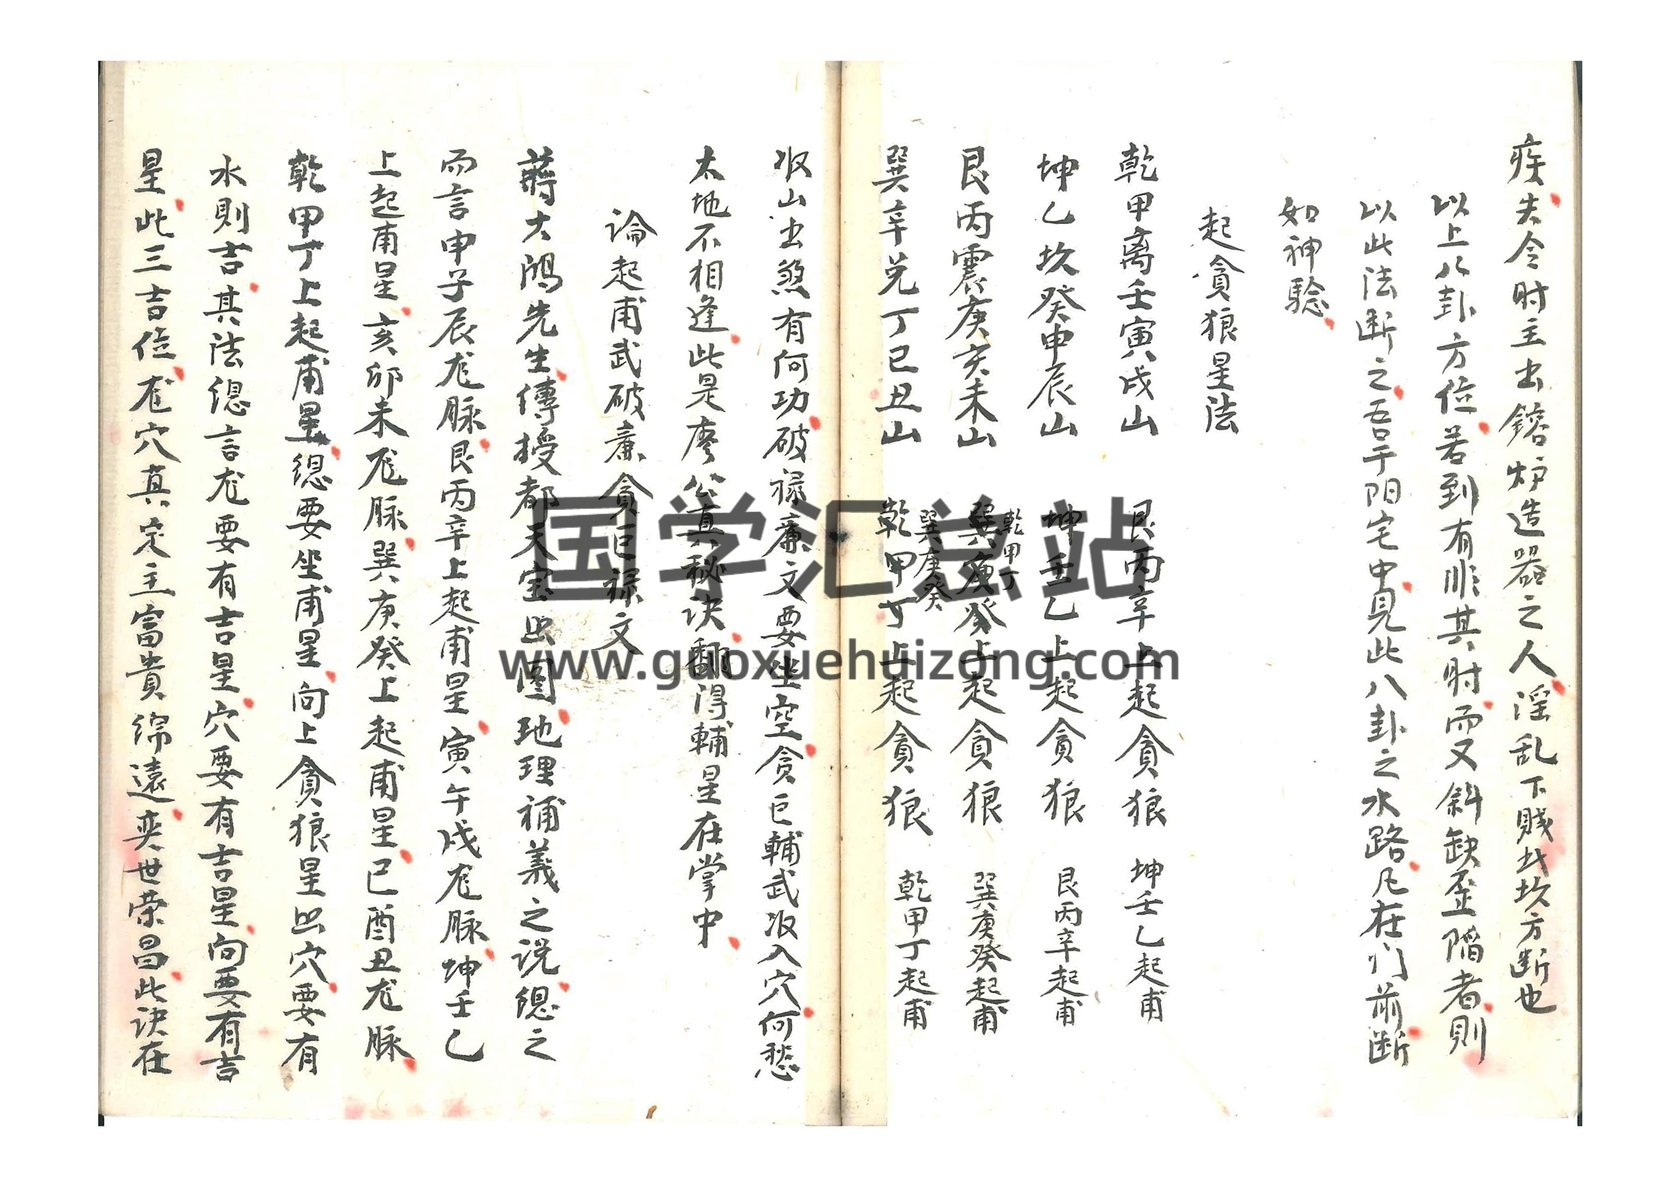 疾失令时主出鎔炉造器之人淫乱下贱此坎方断也
以上八卦方位若到有非其时而又斜缺歪陷者则
以此法断之吾于阳宅中见此八卦之水路凡在门前断
如神騐
起貪狼星法
乾甲离壬寅戌山 艮丙辛上起貪狼 坤壬乙起甫
坤乙坎癸申辰山 坤壬乙上起貪狼 艮丙辛起甫
乾甲丁
艮丙震庚亥未山 巽庚癸上起貪狼 巽庚癸起甫
巽庚癸
巽辛兑丁巳丑山 乾甲丁上起貪狼 乾甲丁起甫
收山出煞有何功破禄廉文要坐空贪巨輔武收入穴何愁
太地不相逢此是廖公真秘诀翻得輔星在掌中
論起甫武破廉貪巨禄文
蔣大鴻先生傳授都天宝照圖地理補義之说總之
而言申子辰龙脉艮丙辛上起甫星寅午戌龙脉坤壬乙
上起甫星亥卯未龙脉巽庚癸上起甫星巳酉丑龙脉
乾甲丁上起甫星總要坐甫星向上貪狼星照穴要有
水则吉其法總言龙要有吉星穴要有吉星向要有吉
星此三吉位龙穴真定主富貴綿遠奕世荣昌此诀在
国学汇总站
www.guoxuehuizong.com